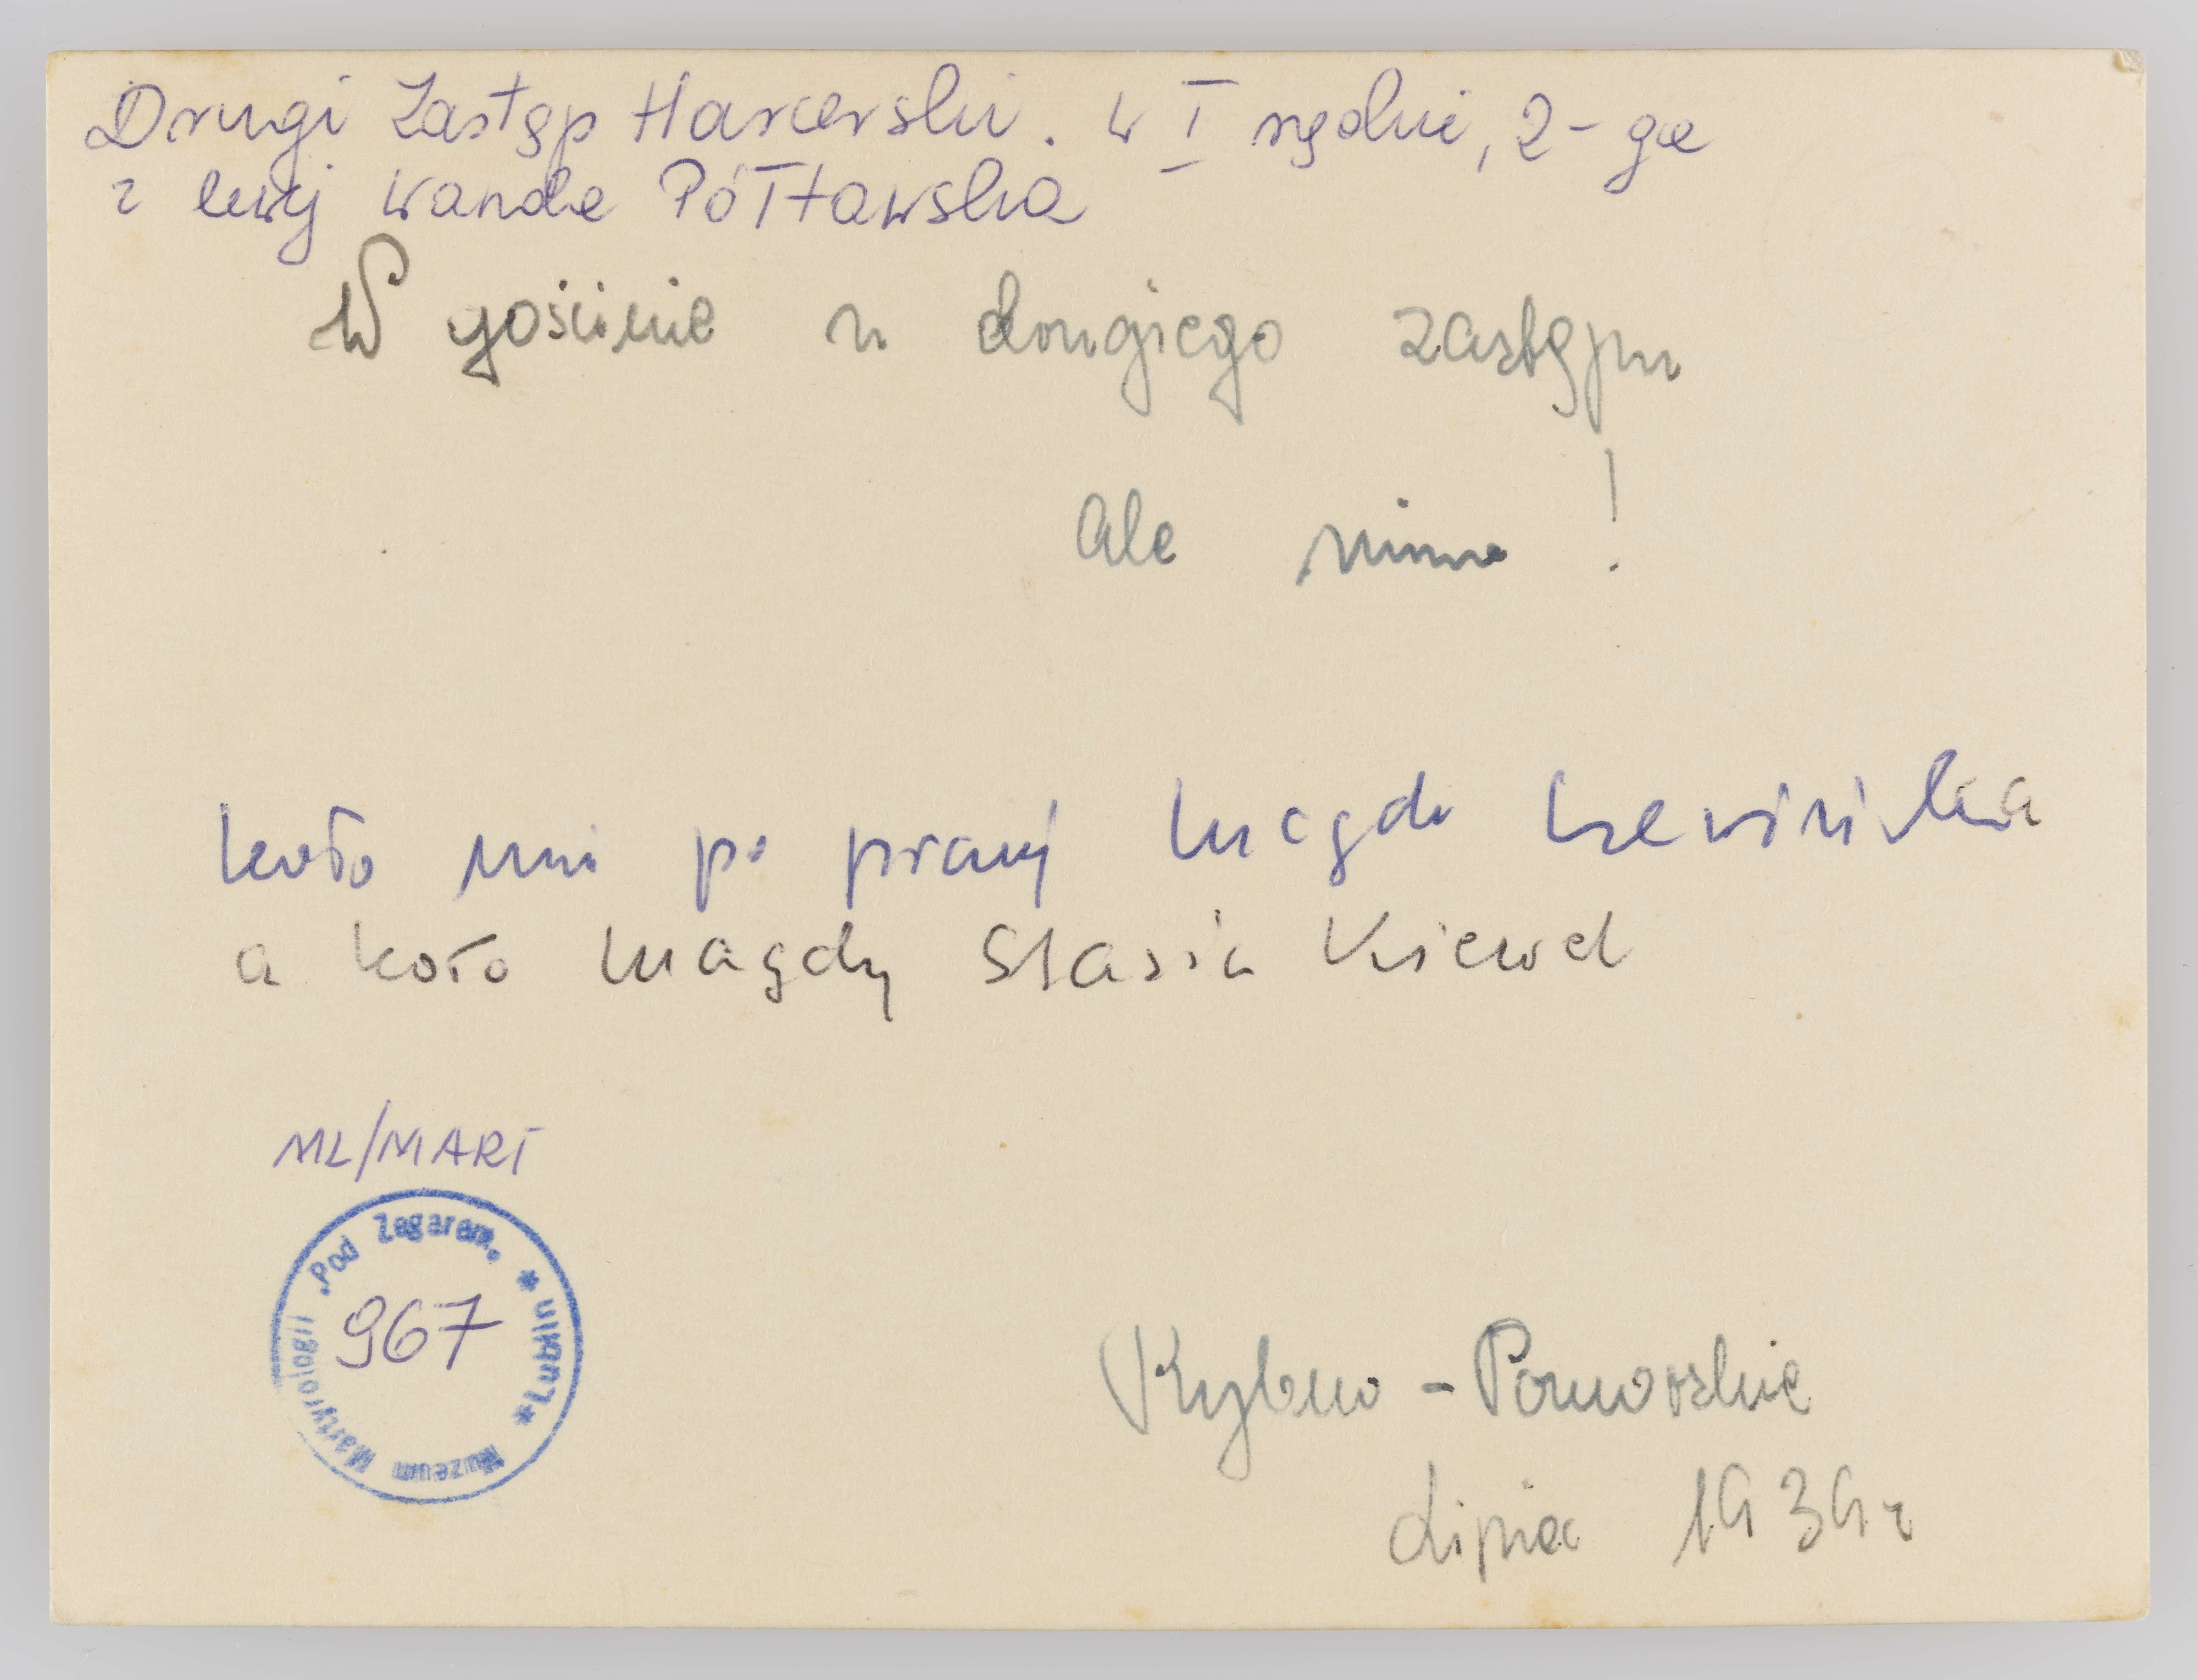 Drugi Zastęp Harcerski. w I rzędzie, 2-ga
z lewej Wanda Półtawska
W gościnie u drugiego zastępu
Ale miny !
koło mni po prawej Magda
a koło Magdy Stasia
ML/MART
Muzeum Martyrologii „Pod Zegarem" * Lublin *
967
Rybno - Pomorskie
Lipiec 1939 r